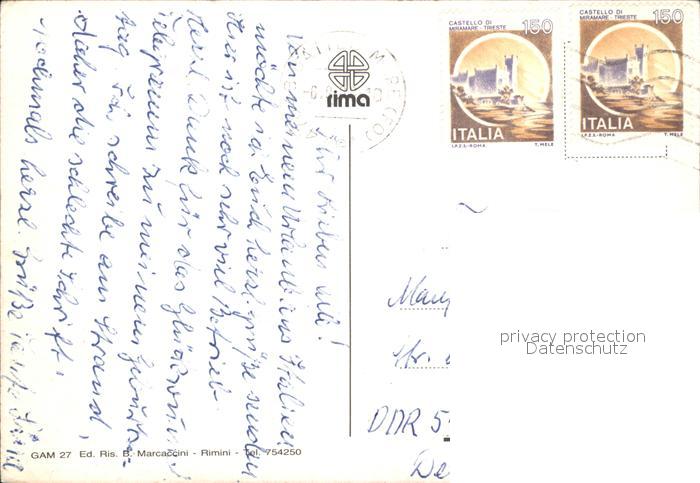 CASTELLO DI
MIRAMARE - TRIESTE
150
ITALIA
I.P.Z.S. - ROMA T. MELE
CASTELLO DI
MIRAMARE - TRIESTE
150
ITALIA
I.P.Z.S. - ROMA T. MELE
rima
Ihr Lieben alle!
Von meinem Urlaub aus Italien
möchte ich Euch herzl. Grüße senden
Hier ist noch sehr viel Betrieb.
Herzl. Dank für das
Telegramm zu meinem Geburts-
tag. Ich schreibe am Strand,
daher die schlechte Schrift.
Nochmals herzl. Grüße
Str.
DDR 5
GAM 27 Ed. Ris. B. Marcaccini - Rimini - Tel. 754250
privacy protection
Datenschutz